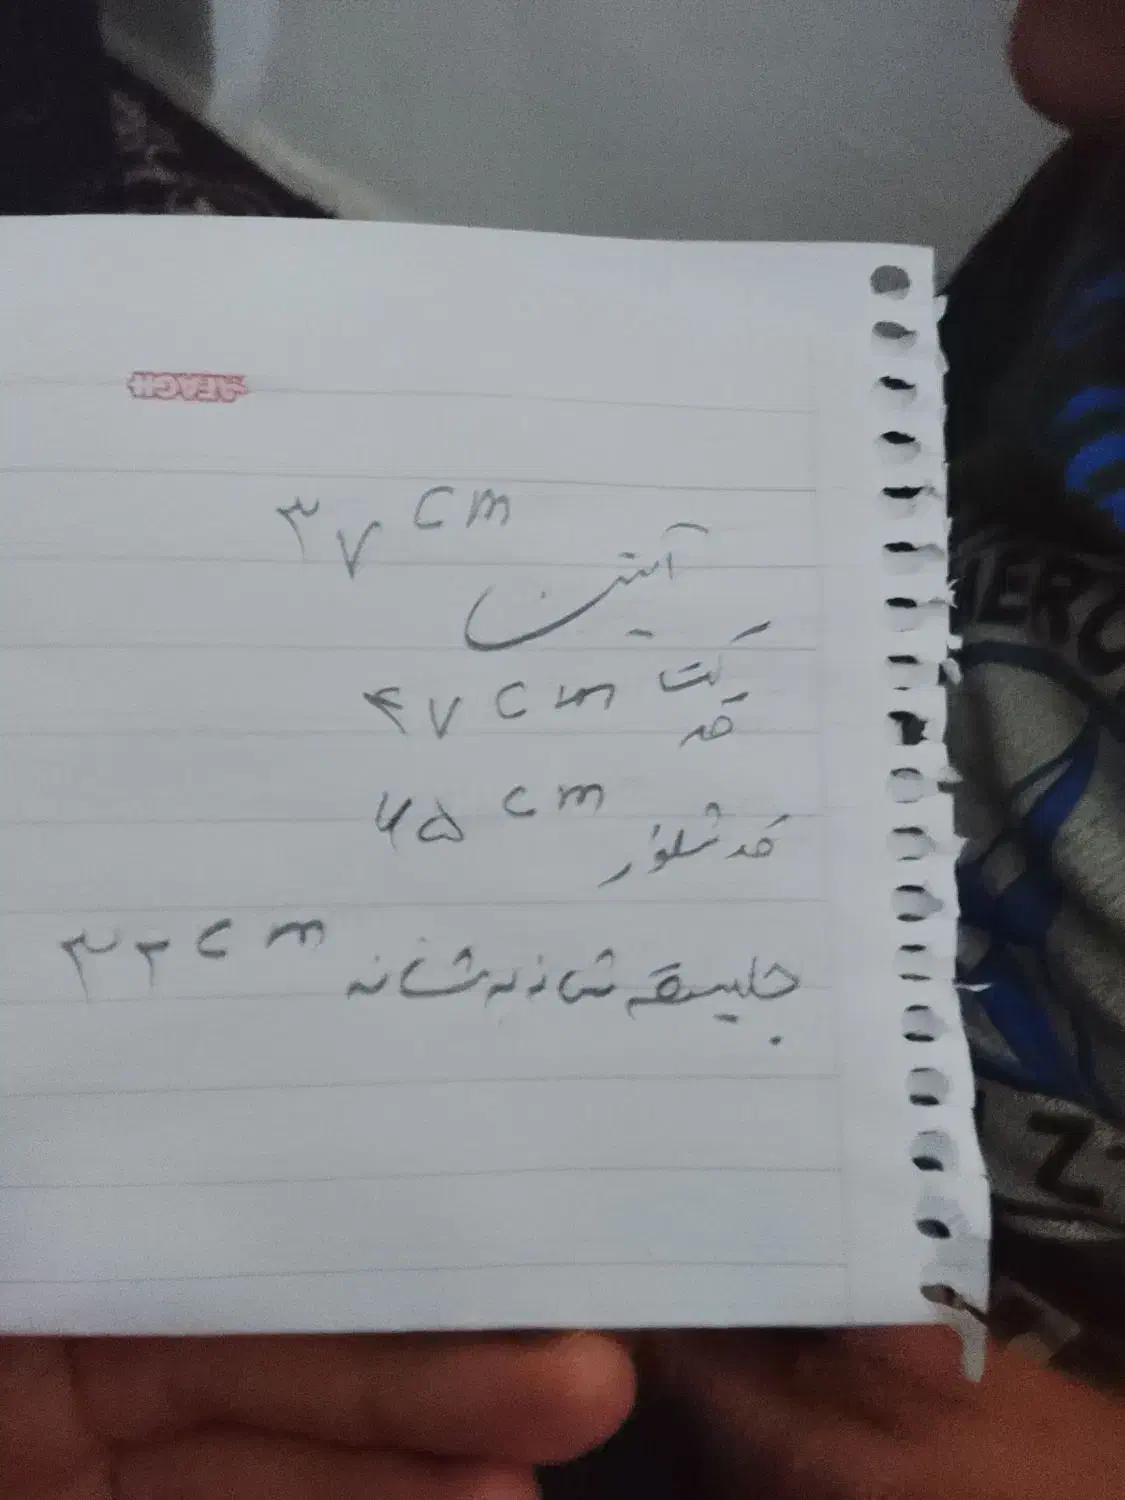 AFAGH
آستین ۳۷ cm
کت
قد ۴۷ cm
قد شلوار ۶۵ cm
جلیسقه شانه به شانه ۳۲ cm